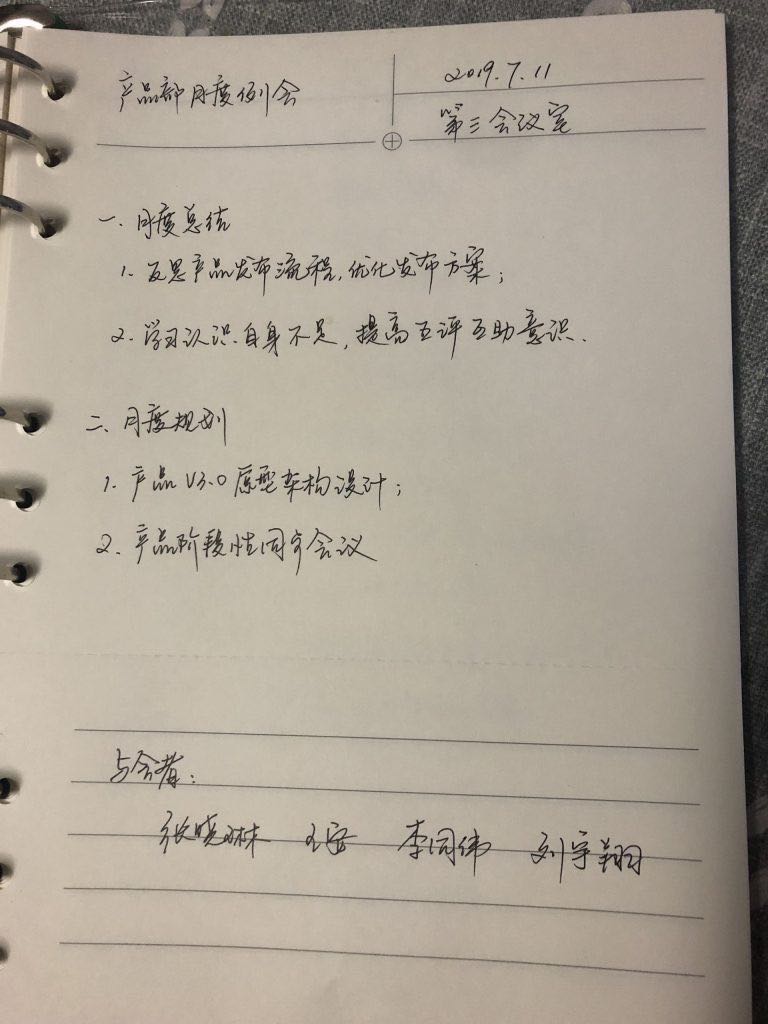 产品部月度例会
2019.7.11
第三会议室
一、月度总结
1. 反思产品发布流程,优化发布方案;
2. 学习认识自身不足,提高互评互助意识.
二、月度规划
1. 产品V3.0原型架构设计;
2. 产品阶段性同步会议
与会者:
张晓琳 王安 李国伟 刘宇翔